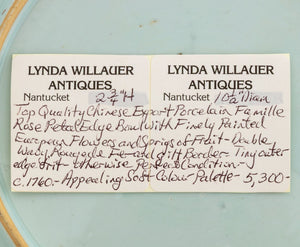 LYNDA WILLAUER LYNDA WILLAUER
ANTIQUES ANTIQUES
Nantucket 2 3/4"H Nantucket 10 1/2" Diam
Top Quality Chinese Export Porcelain Famille
Rose Petal Edge Bowl With Finely Painted
European Flowers and Sprigs of Fruit - Double
Wavy Rouge de Fer and gilt Border - Tiny outer
edge frit - otherwise Perfect Condition -
c. 1760 - Appealing Soft Colour Palette - 5,300 -